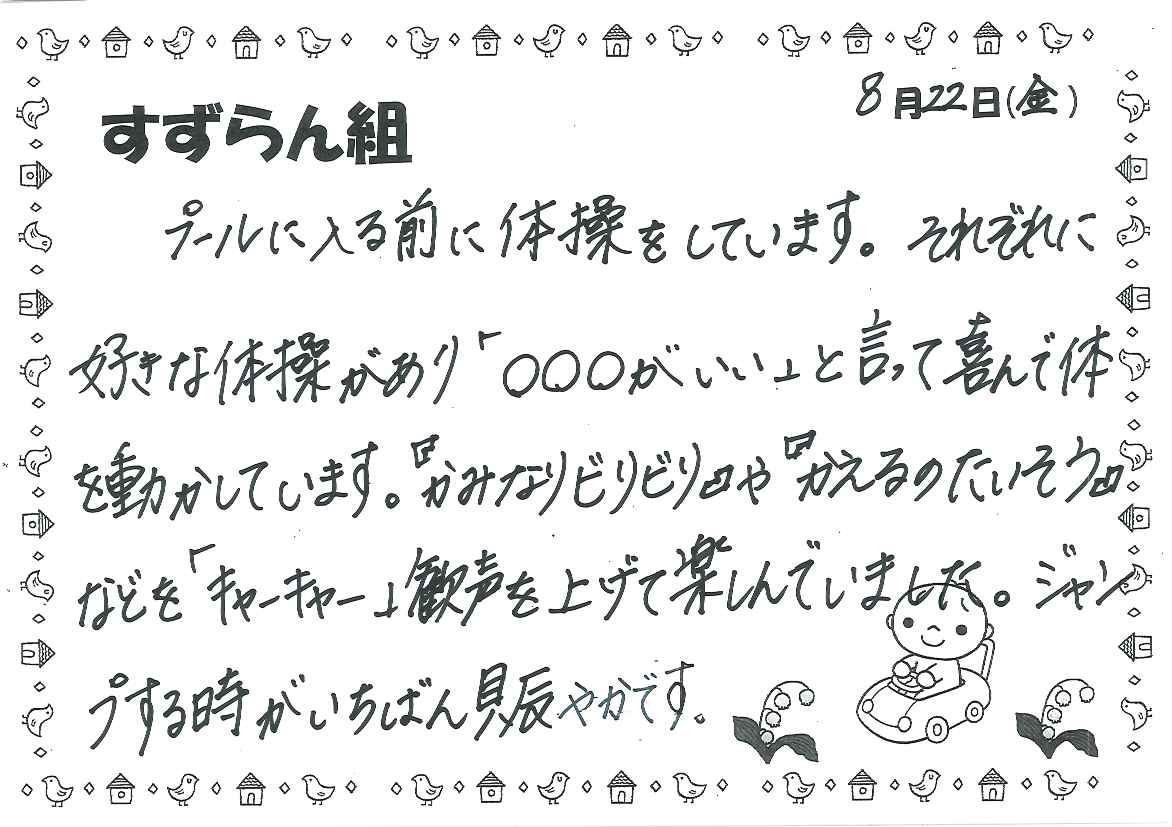 8月22日(金)
すずらん組
プールに入る前に体操をしています。それぞれに
好きな体操があり「〇〇〇がいい」と言って喜んで体
を動かしています。『かみなりビリビリ』や『かえるのたいそう』
などを「キャーキャー」歓声を上げて楽しんでいました。ジャン
プする時がいちばん賑やかです。